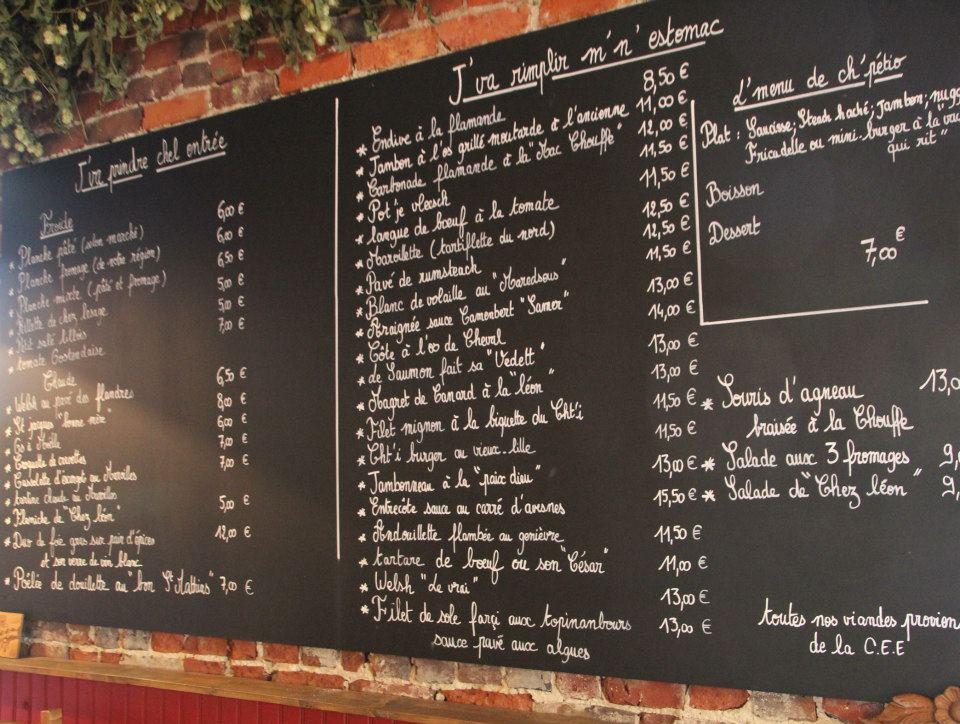 J'va prindre chel entrée
Froide
* Planche pâté (selon marché) 6,00 €
* Planche fromage (de notre région) 6,00 €
* Planche mixte (pâté et fromage) 6,50 €
* Rillette de chez Lesage 5,00 €
* Ptit salé lillois 5,00 €
* tomate Oostendaise 7,00 €
Chaude
* Welsh ou pavé des flandres 6,50 €
* St jacques "bonne mère" 8,00 €
* à 6,00 €
* Croquette de crevettes 7,00 €
* Cassolette d'escargot au Maroilles 7,00 €
* tartine chaude au Maroilles
* Flamiche de "Chez léon" 5,00 €
* Duo de foie gras sur pain d'épices 12,00 €
et son verre de vin blanc
* Poêlée de douillette au "bon St Mathieu" 7,00 €
J'va rimplir m'n' estomac
* Endive à la flamande 8,50 €
* Jambon à l'os grillé moutarde à l'ancienne 11,00 €
* Carbonade flamande à la "Mac Chouffe" 12,00 €
* Pot'je vleesch 11,50 €
* langue de bœuf à la tomate 11,50 €
* Maroillette (tartiflette du nord) 12,50 €
* Pavé de rumsteack 12,50 €
* Blanc de volaille au "Maredsous" 11,50 €
* Araignée sauce Camembert "Samer" 13,00 €
* Côte à l'os de Cheval 14,00 €
* de Saumon fait sa "Vedett" 13,00 €
* Magret de Canard à la "léon" 13,00 €
* Filet mignon à la biquette du Cht'i 11,50 €
* Cht'i burger au vieux-lille 11,50 €
* Jambonneau à la "paix dieu" 13,00 €
* Entrecôte sauce au carré d'avesnes 15,50 €
* Andouillette flambée au genièvre 11,50 €
* tartare de bœuf ou son "César" 11,00 €
* Welsh "Le vrai" 13,00 €
* Filet de sole farçi aux topinanbours 13,00 €
sauce pavé aux algues
L'menu de ch'pétio
Plat : Saucisse; Steak haché; Jambon; nugg
Fricadelle ou mini-burger à la "vac
qui rit"
Boisson
Dessert
7,00 €
* Souris d'agneau 13,0
braisée à la Chouffe
* Salade aux 3 fromages 9,
* Salade de "Chez léon" 9,
toutes nos viandes provien
de la C.E.E